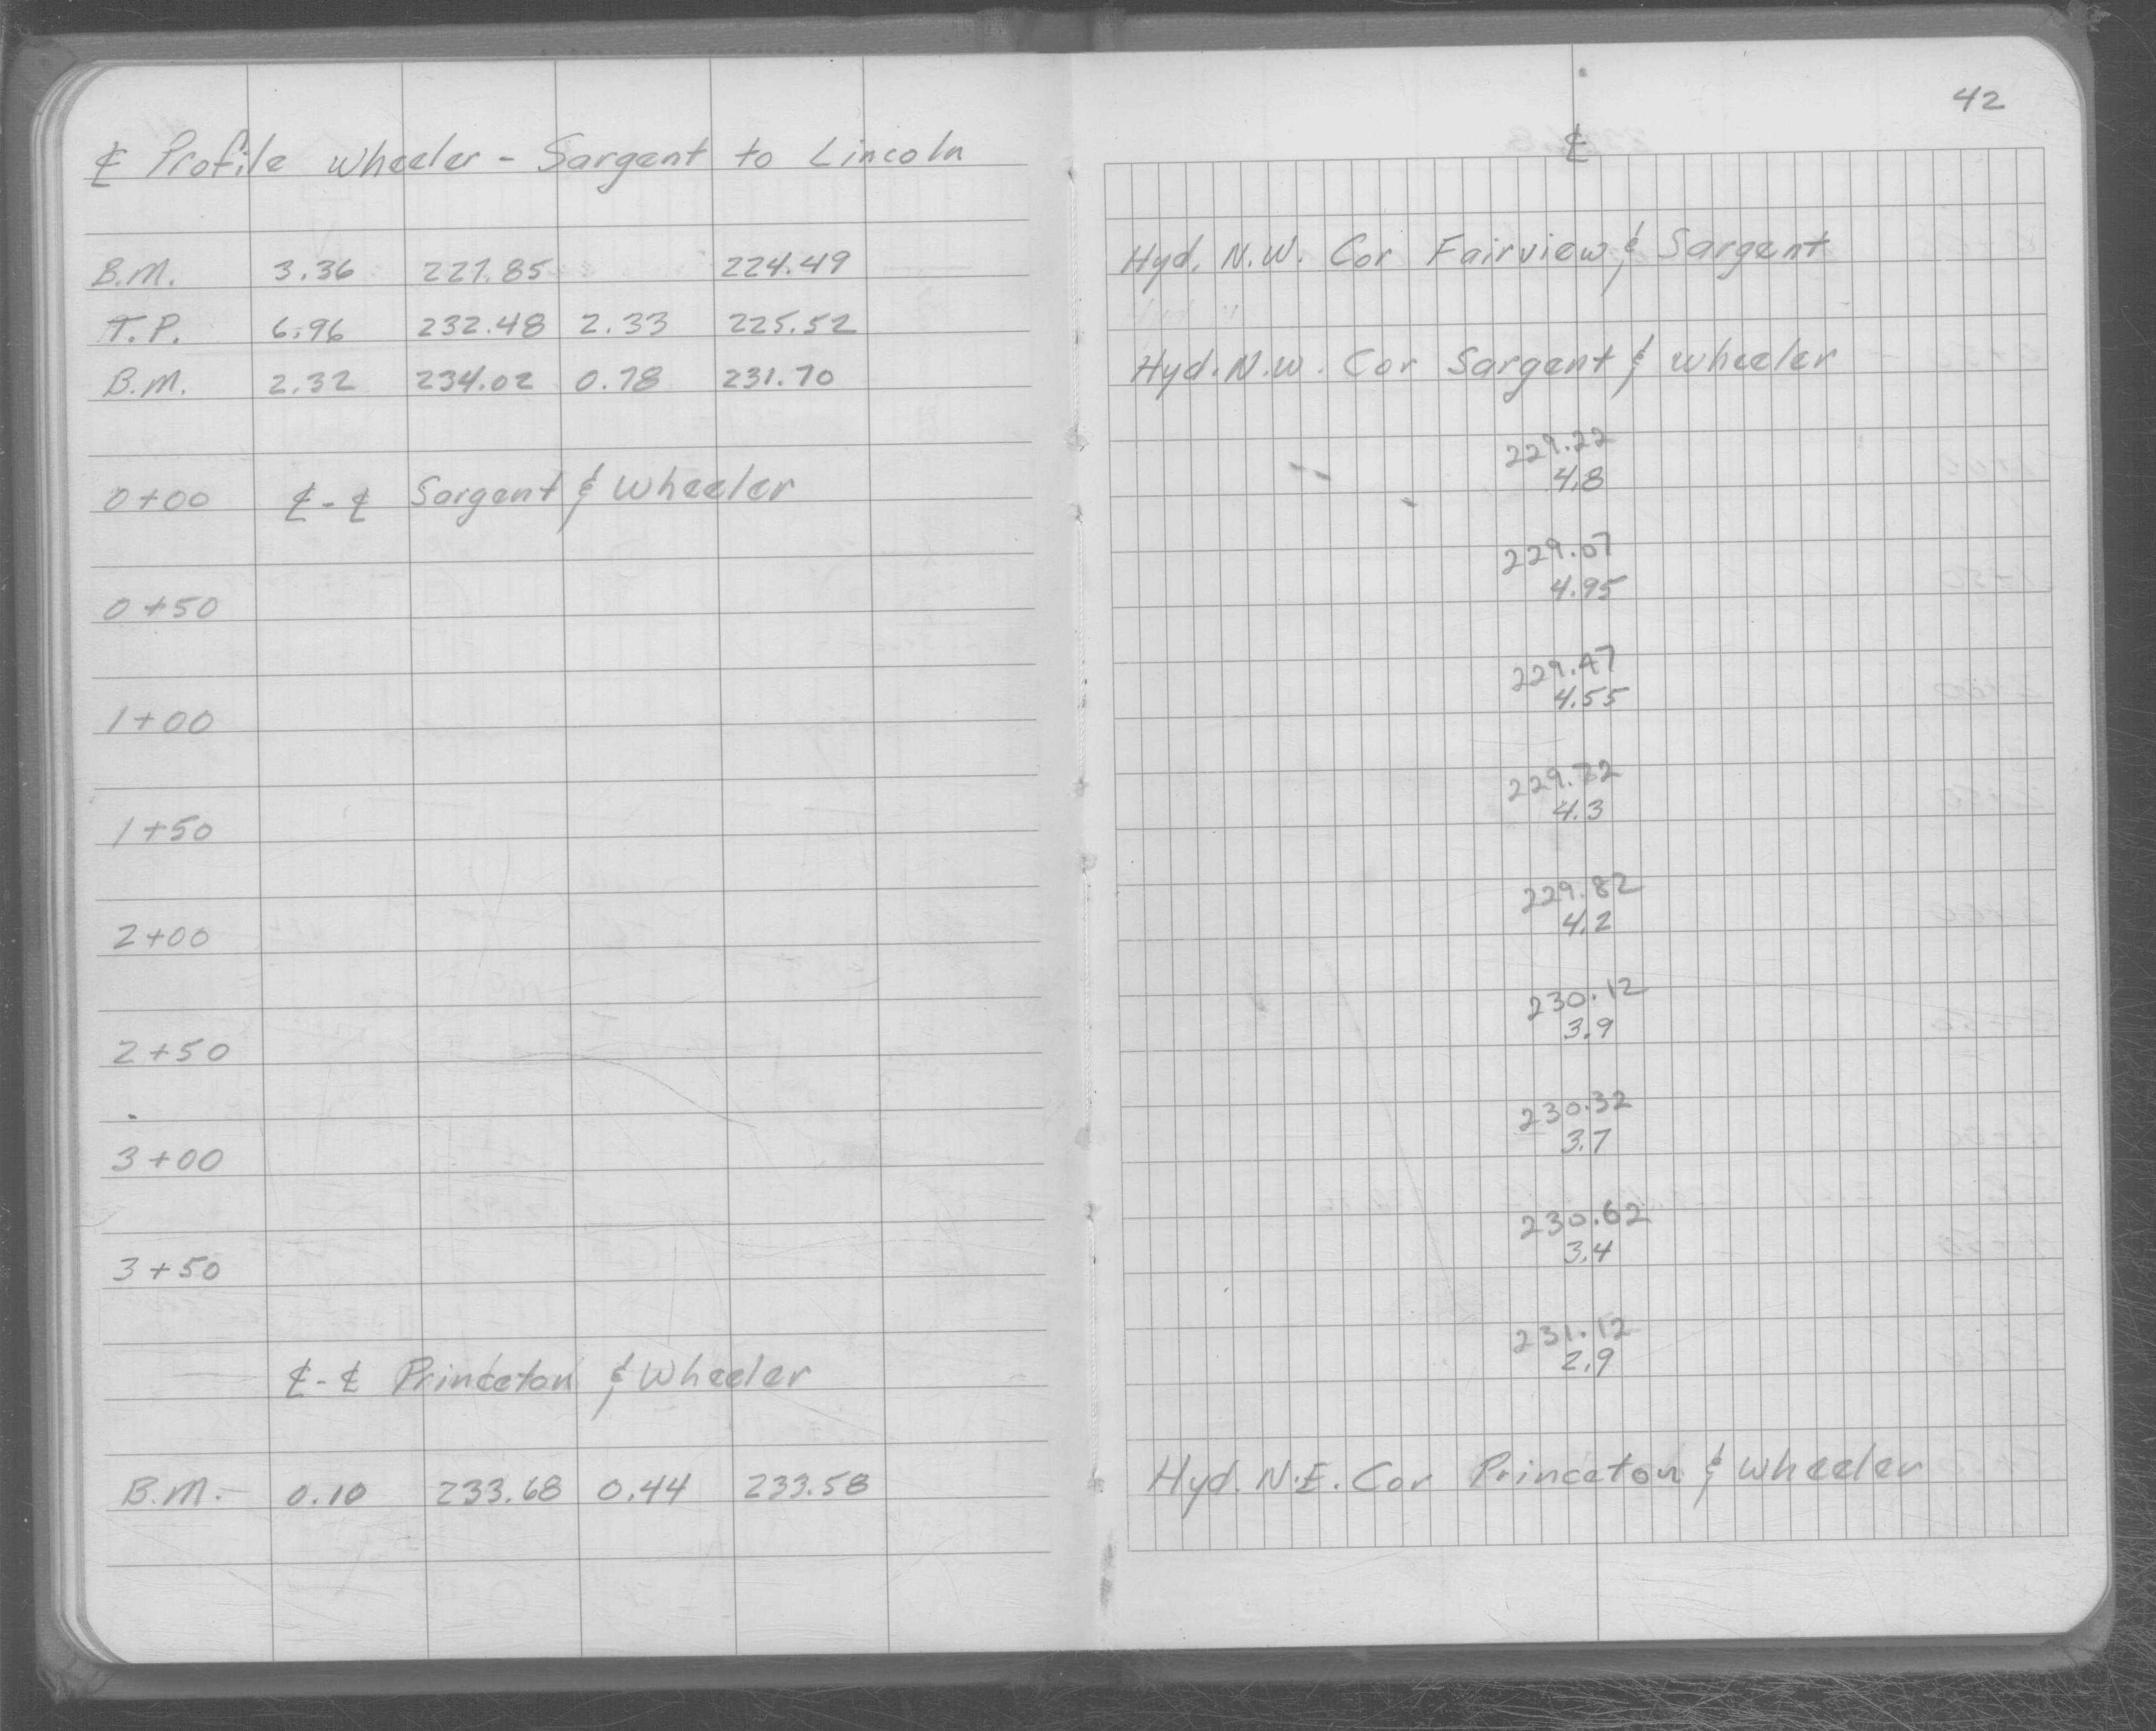 ℄ Profile Wheeler - Sargent to Lincoln
B.M. 3.36 227.85 224.49
T.P. 6.96 232.48 2.33 225.52
B.M. 2.32 234.02 0.78 231.70
0+00 ℄-℄ Sargent & Wheeler
0+50
1+00
1+50
2+00
2+50
3+00
3+50
℄-℄ Princeton & Wheeler
B.M. 0.10 233.68 0.44 233.58
42
℄
Hyd. N.W. Cor Fairview & Sargent
Hyd. N.W. Cor Sargent & Wheeler
229.22
4.8
229.07
4.95
229.47
4.55
229.72
4.3
229.82
4.2
230.12
3.9
230.32
3.7
230.62
3.4
231.12
2.9
Hyd. N.E. Cor Princeton & Wheeler